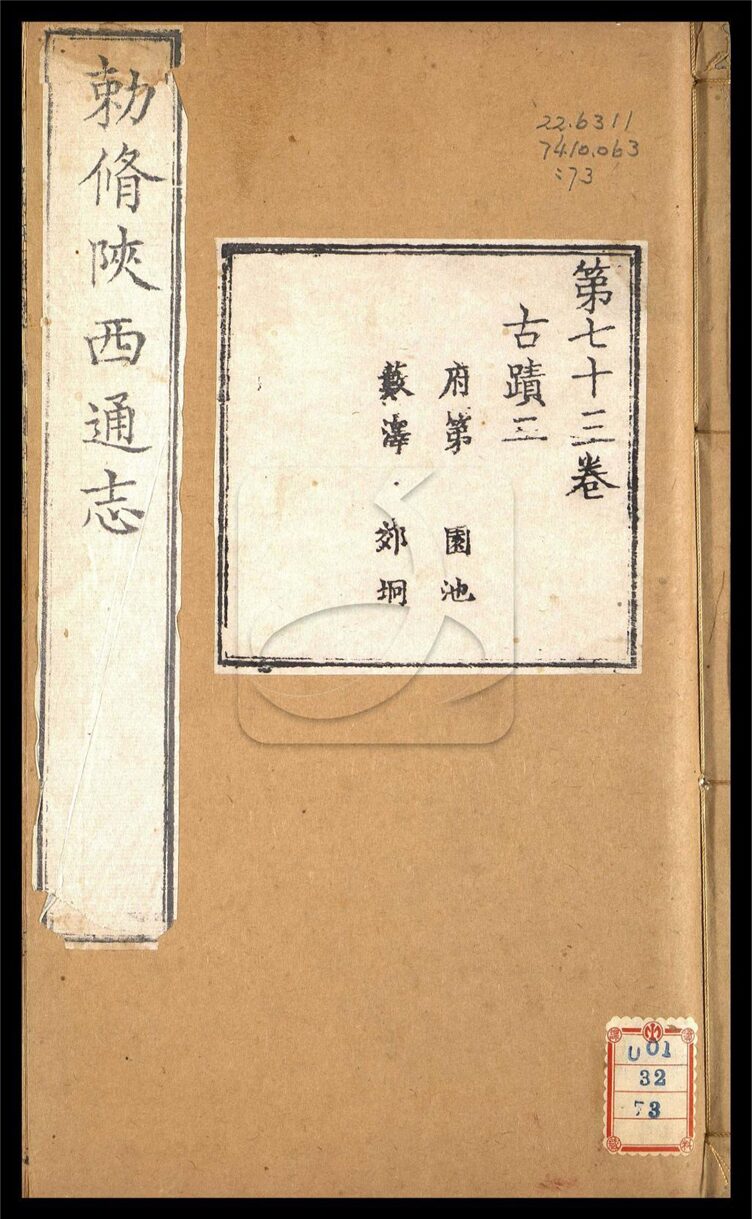 勅脩陝西通志
22.6311
7410.063
:73
第七十三卷
古蹟二
府第 園池
藪澤 郊坰
U01
32
73